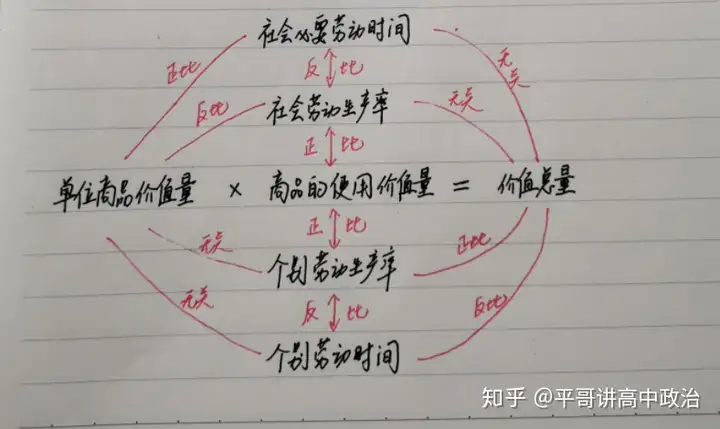 社会必要劳动时间
正比
反 比
无关
反比
社会劳动生产率
无关
正 比
单位商品价值量 × 商品的使用价值量 = 价值总量
正 比
无关
个别劳动生产率
正比
无关
反 比
反比
个别劳动时间
知乎 @平哥讲高中政治